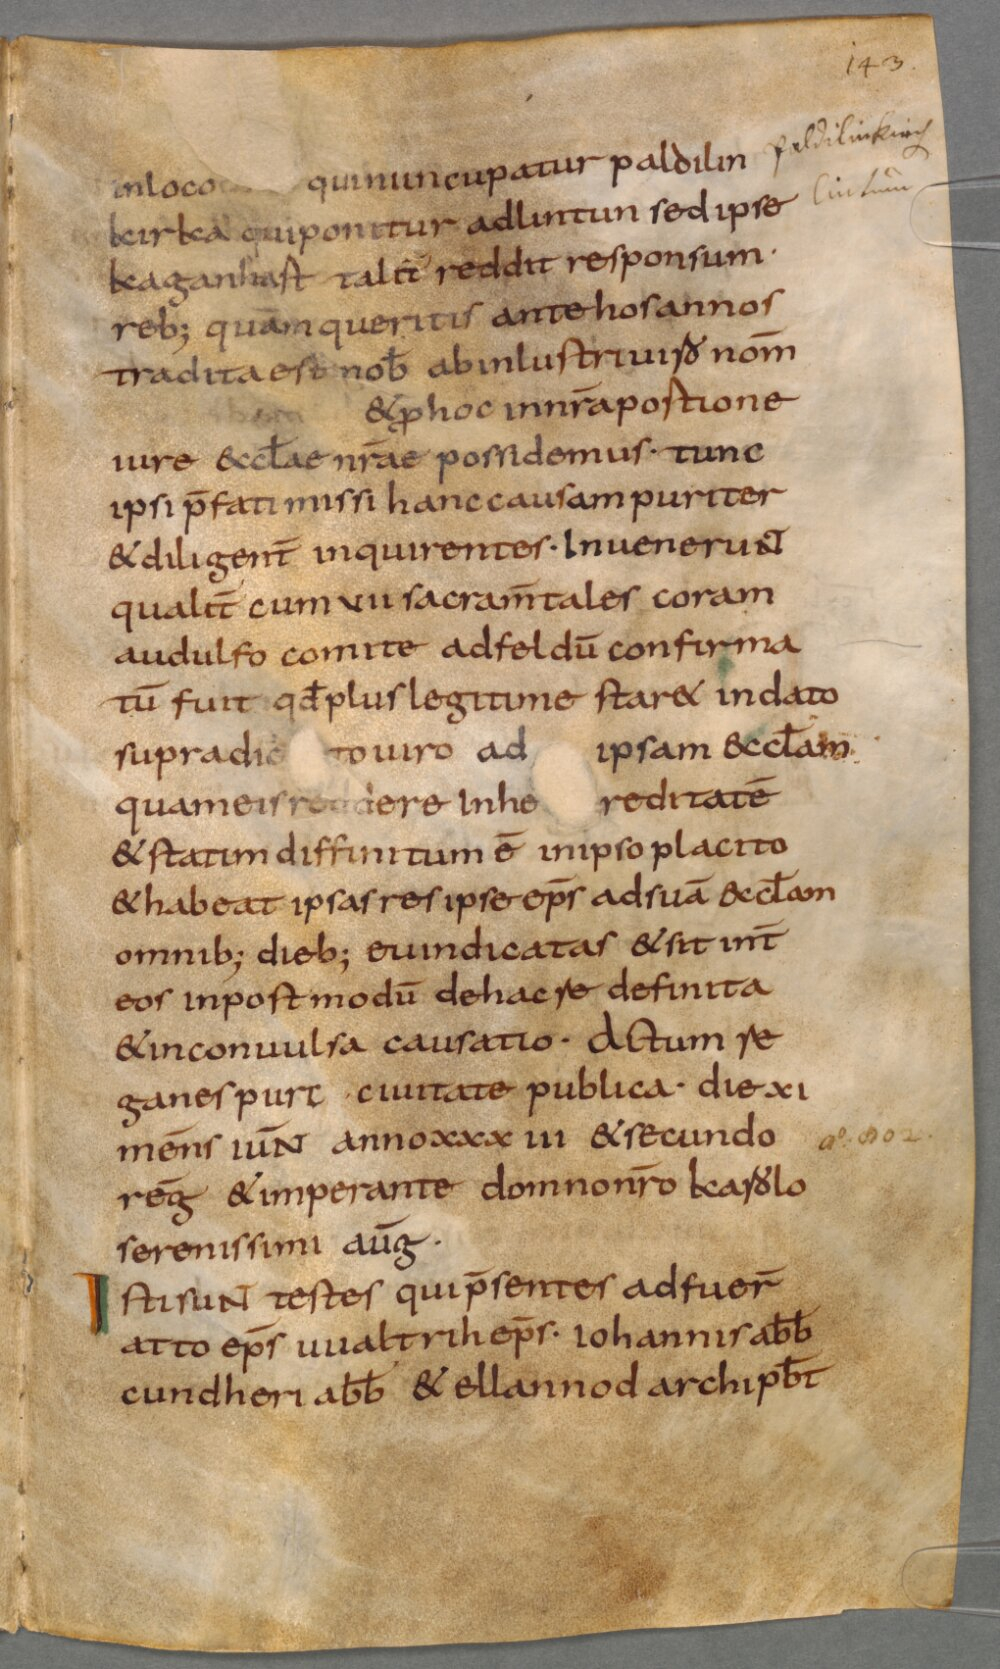 143.
inloco quinuncupatur paldilin
paldilinkirch
kirka quiponitur adlintun sedipse
lintun
kaganhast talit̄ reddit responsum·
reb; quam queritis antehosannos
traditaest nob̄ abinlustriuiro nom̄
&ꝓhoc innr̄apostione
iure &ccl̄ae nr̄ae possidemus· tunc
ipsi p̄fati missi hanccausam puriter
&diligent̄ inquirentes· Inuenerunt
qualit̄ cum vii sacram̄tales coram
audulfo comite adfeldū confirma
tū fuit qđ plus legitime star& indato
supradic touiro ad ipsam &ccl̄am
quameisreddere Inhe reditatē
&statim diffinitum ē inipso placito
&habeat ipsas res ipse ep̄s adsuā &ccl̄am
omnib; dieb; euindicatas &sit int̄
eos inpostmodū dehac re definita
&inconuulsa causatio· Actum re
ganespurt ciuitate publica· die xi
mēns iūn anno xxx iii &secundo
a°. 802.
rēg &imperante domnonr̄o karolo
serenissimi aūg·
Isti sunt testes quip̄sentes adfuer̄
atto ep̄s uualtrih ep̄s· iohannis ab̄b
cundheri ab̄b &ellannod archipb̄t